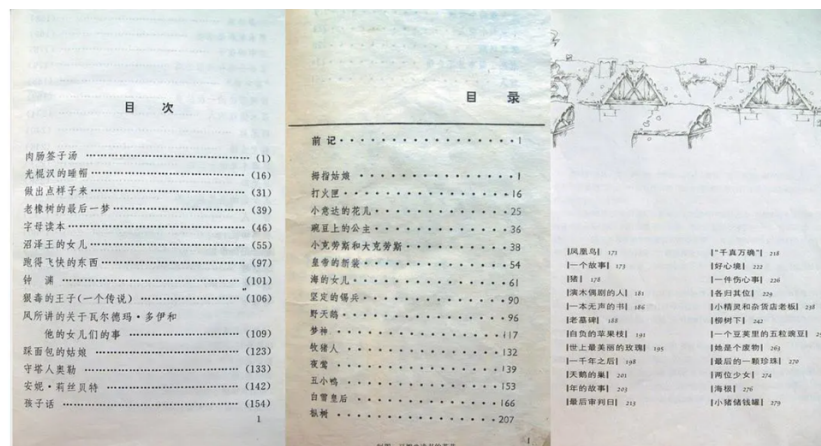 目 次
肉肠签子汤 (1)
光棍汉的睡帽 (16)
做出点样子来 (31)
老橡树的最后一梦 (39)
字母读本 (46)
沼泽王的女儿 (55)
跑得飞快的东西 (97)
钟 渊 (101)
狠毒的王子(一个传说) (106)
风所讲的关于瓦尔德玛·多伊和
他的女儿们的事 (109)
踩面包的姑娘 (123)
守塔人奥勒 (133)
安妮·莉丝贝特 (142)
孩子话 (154)
1
目 录
前记 1
拇指姑娘 1
打火匣 16
小意达的花儿 25
豌豆上的公主 36
小克劳斯和大克劳斯 38
皇帝的新装 54
海的女儿 61
坚定的锡兵 90
野天鹅 96
梦神 117
牧猪人 132
夜莺 139
丑小鸭 153
白雪皇后 166
枞树 207
1
|凤凰鸟| 171
|一个故事| 173
|猪| 178
|演木偶剧的人| 181
|一本无声的书| 186
|老墓碑| 188
|自负的苹果枝| 191
|世上最美丽的玫瑰| 195
|一千年之后| 198
|天鹅的巢| 201
|年的故事| 203
|最后审判日| 213
|“千真万确”| 218
|好心境| 222
|一件伤心事| 226
|各归其位| 229
|小精灵和杂货店老板| 238
|柳树下| 242
|一个豆荚里的五粒豌豆|
|她是个废物| 263
|最后的一颗珍珠| 270
|两位少女| 274
|海极| 276
|小猪储钱罐| 279